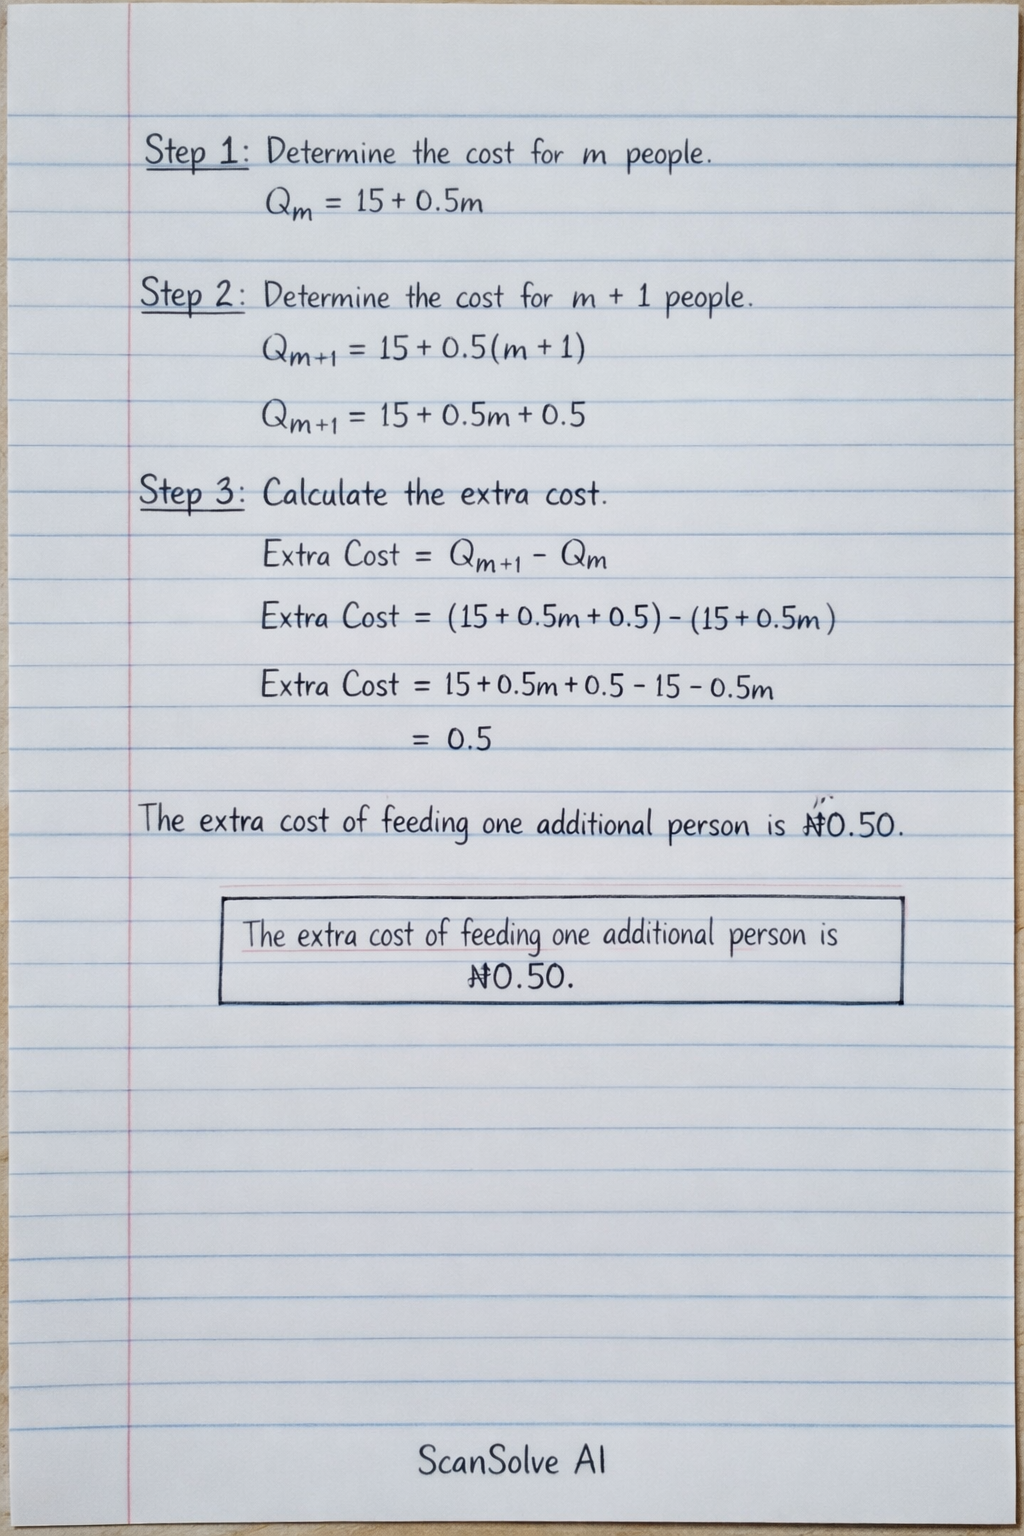 Step 1: Determine the cost for m people.
Qm = 15 + 0.5m
Step 2: Determine the cost for m + 1 people.
Qm+1 = 15 + 0.5(m + 1)
Qm+1 = 15 + 0.5m + 0.5
Step 3: Calculate the extra cost.
Extra Cost = Qm+1 - Qm
Extra Cost = (15 + 0.5m + 0.5) - (15 + 0.5m)
Extra Cost = 15 + 0.5m + 0.5 - 15 - 0.5m
= 0.5
The extra cost of feeding one additional person is ₦0.50.
The extra cost of feeding one additional person is
₦0.50.
ScanSolve AI